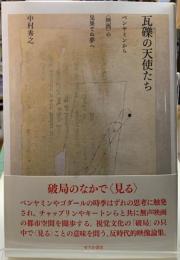 瓦礫の天使たち
ベンヤミンから
〈映画〉の
見果てぬ夢へ
中村秀之
破局のなかで〈見る〉
ベンヤミンやゴダールの時季はずれの思考に触発
され、チャップリンやキートンらと共に無声映画
の都市空間を闊歩する。視覚文化の「破局」の只
中で〈見る〉ことの意味を問う、反時代的映像論集。
せりか書房